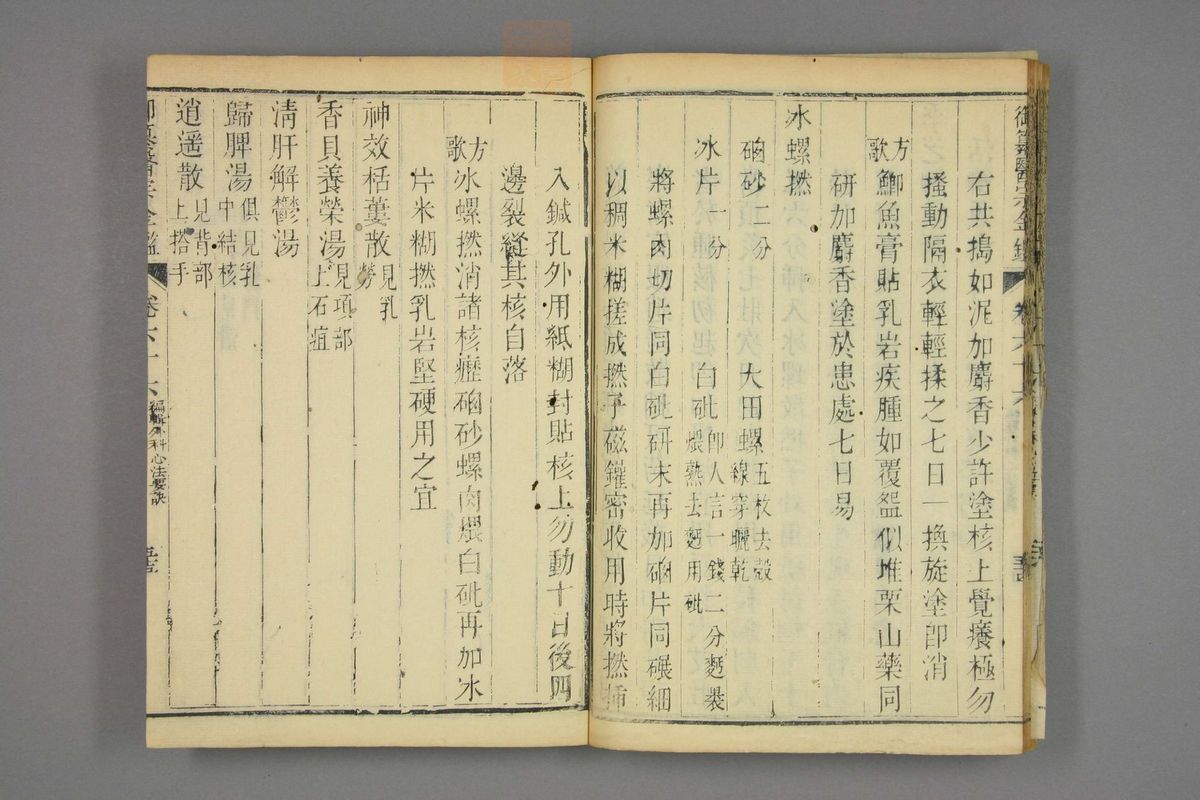 御纂醫宗金鑑 卷六十六
右共搗如泥加麝香少許塗核上覺癢極勿
搔動隔衣輕輕揉之七日一換旋塗卽消
方歌 鯽魚膏貼乳岩疾腫如覆盌似堆栗山藥同
研加麝香塗於患處七日易
冰螺撚
硇砂二分 大田螺五枚去殼線穿曬乾
冰片一分 白砒卽人言一錢二分麪裹煨熟去麪用砒
將螺肉切片同白砒研末再加硇片同碾細
以稠米糊搓成撚子磁鑵密收用時將撚插
入鍼孔外用紙糊封貼核上勿動十日後四
邊裂縫其核自落
方歌 冰螺撚消諸核癧硇砂螺肉煨白砒再加冰
片米糊撚乳岩堅硬用之宜
神效栝蔞散見乳勞
香貝養榮湯見項部上石疽
清肝解鬱湯
歸脾湯俱見乳中結核
逍遥散見背部上搭手
御纂醫宗金鑑 卷六十六 編輯外科心法要訣